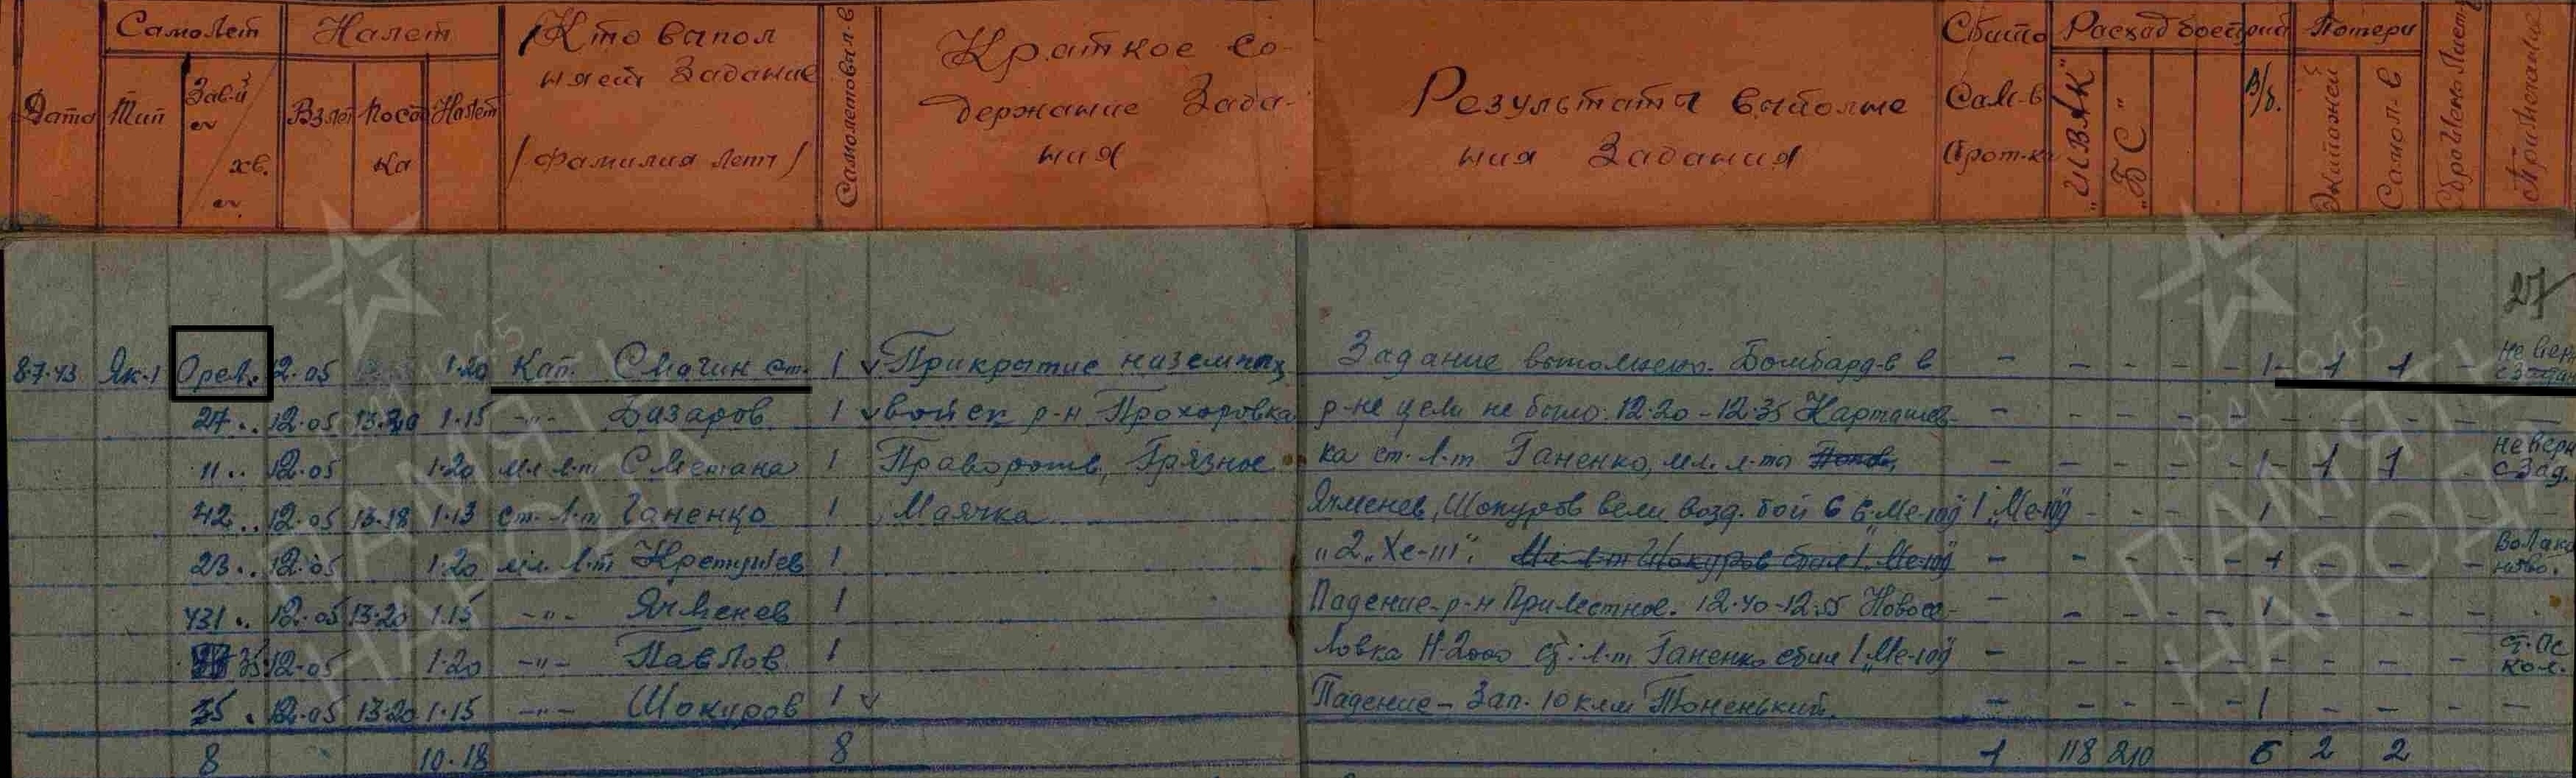 Дата Самолет Налет Кто выпол Самолетовыл-в Краткое со- Результаты выполне Сбито Расход боепри Потери Примечание
Тип Зав-й Взлет Посад Налет няет Задание держание Зада- ния Задания Сам-в "ШВАК" "БС" В/б. Экипажей Самол-в
хв. ка /Фамилия летч/ ния Прот-ка
27
8.7.43 Як-1 Орел. 12.05 1.20 Кап. Смагин ст. 1 Прикрытие наземных Задание выполнено. Бомбард-в в – – – – – 1 1 1 – не верн
с задан
27.. 12.05 13.20 1.15 -"- Базаров 1 войск р-н Прохоровка р-не цели не было. 12.20-12.35 Карташев- – – – – – – – – –
11.. 12.05 1.20 мл. л-т Сметана 1 Правороть, Грязное ка ст. л-т Ганенко, мл. л-ты – – – – – 1 1 1 – не верн
с зад.
42.. 12.05 13.18 1.13 ст. л-т Ганенко 1 Маячка Ячменев, Шокуров вели возд. бой с 6 "Ме-109" 1 "Ме-109" – – – 1 – – –
23.. 12.05 1.20 мл. л-т 1 и 2 "Хе-111". Мл. л-т Шокуров сбил 1 "Ме-109" – – – – – 1 – – –
431.. 12.05 13.20 1.15 -"- Ячменев 1 Падение р-н Прилестное. 12.40-12.55 Новосе- – – – – – 1 – – –
35 12.05 1.20 -"- Павлов 1 ловка Н-2000 ст. л-т Ганенко сбил 1 "Ме-109" – – – – – – – – –
35. 12.05 13.20 1.15 -"- Шокуров 1 Падение – Зап. 10 клм – – – – – 1 – – – –
8 10.18 8 1 118 210 6 2 2
1941-1945
ПАМЯТЬ
НАРОДА
1941-1945
ПАМЯТЬ
НАРОДА